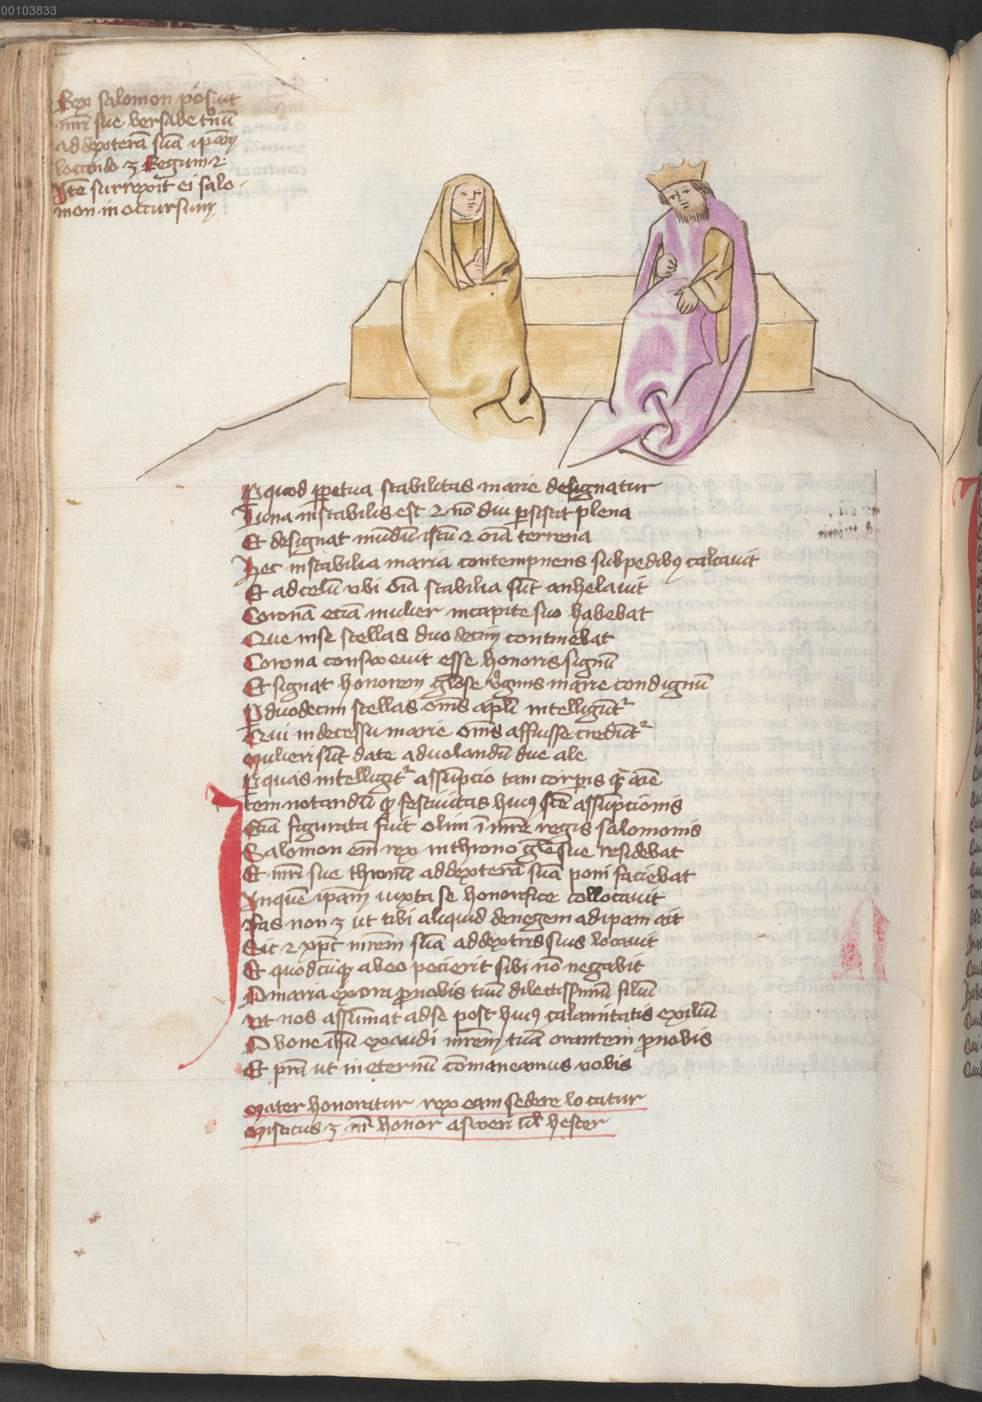 00103833
Rex salomon posuit
mr̄i sue versable tr̄nū
ad dexterā suā ipām
locando 3 Regum 2
Itē surrexit ei salo
mon in occursum
P quod ppetua stabilitas marie designatur
Luna instabilis est 2 nō diu psistit plena
Et designat mūdū istū 2 oīa terrena
Hec instabilia maria contempnens subpedibꝰ calcauit
Et ad celū vbi oīa stabilia sūt anhelauit
Coronā etiā mulier in capite suo habebat
Que in se stellas duodecim continebat
Corona consweuit esse honoris signū
Et signat honorem glōse v̓ginis marie condignū
P duodecim stellas om̄s apl̄i intelligūt᷑
Qui in decessu marie om̄s affuisse credūt᷑
Mulieri sūt date ad uolandū due ale
P quas intelligit᷑ assūpcio tam corpis qͣ aīe
Item notandū ꝙ festiuitas huiꝰ scē assūpcionis
Etiā figurata fuit olim ī mr̄e regis salomonis
Salomon em̄ rex in throno glē sue residebat
Et mr̄i sue thronū ad dexterā suā poni faciebat
In quē ipām iuxta se honorifice collocauit
Fas non ꝫ ut tibi aliquid denegem ad ipam ait
Sic 2 xp̄c mr̄em suā ad dextris suis locauit
Et quodcūqꝫ ab eo pecierit sibi nō negabit
O maria exora p nobis tuū dilectissimū filiū
Ut nos assūmat ad se post huiꝰ calamitatis exiliū
O bone ih̄u exaudi mr̄em tuā orantem p nobis
Et pr̄ā ut in eternū cōmaneamus vobis
Mater honoratur rex eam sedere locatur
Misticus ꝫ mr̄ honor asweri hester